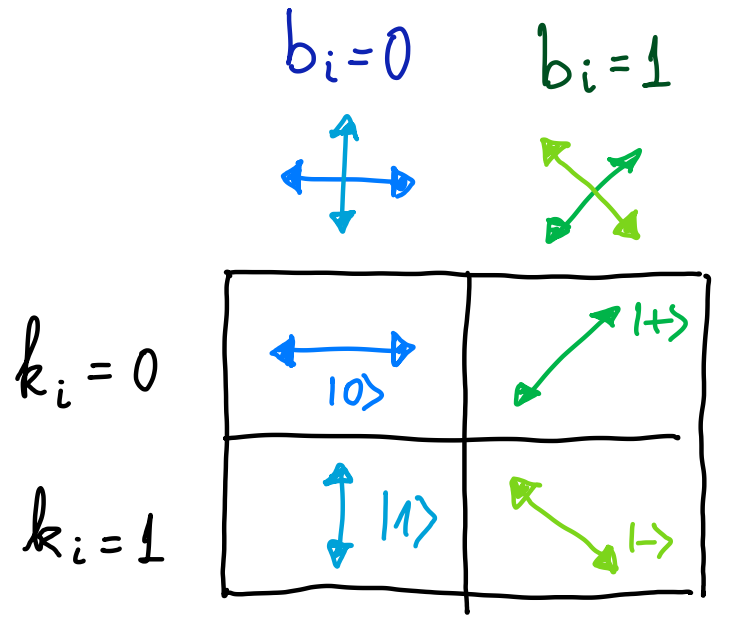 b_i = 0 b_i = 1
k_i = 0 |0⟩ |+⟩
k_i = 1 |1⟩ |−⟩